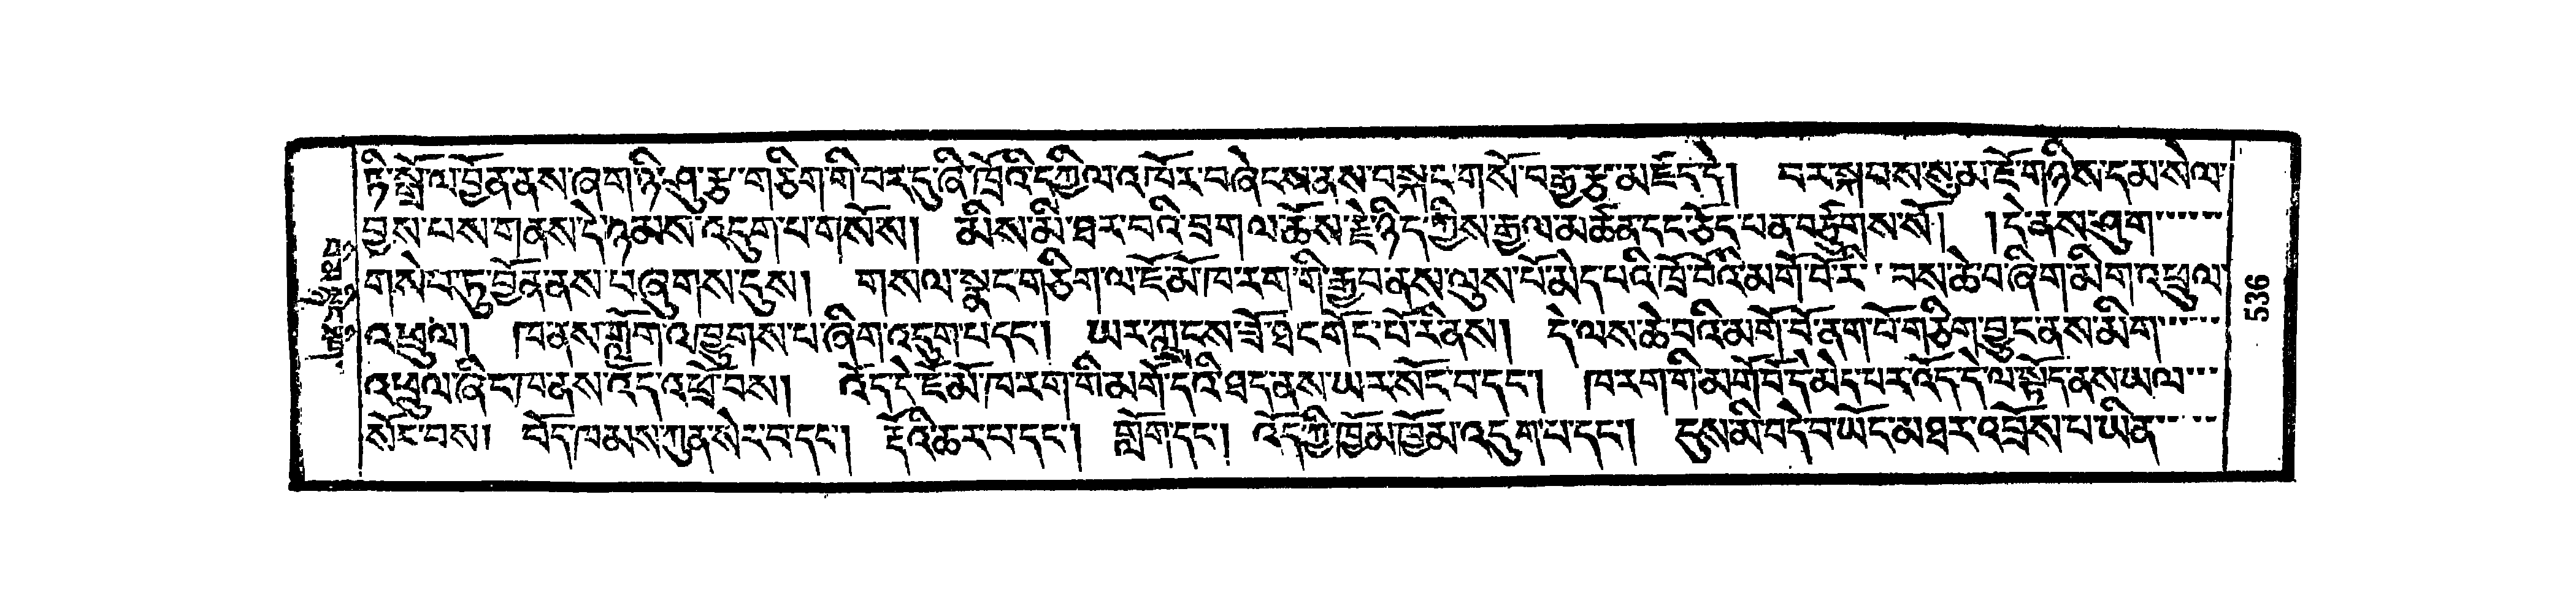 ཏི་སྒྲོལ་བྱོན་ནས་ཞག་ཉི་ཤུ་རྩ་གཅིག་གི་བར་དུ་ཞི་ཁྲོའི་དཀྱིལ་འཁོར་བཞེངས་ནས་བསྐང་གསོ་བརྒྱ་རྩ་མཛད་དེ། བར་སྐབས་སུ་མ་ཇོ་གཉིས་དམ་སེལ་
བྱས་པས་གནས་དེ་ཉམས་འདུག་པ་གསོས། མིས་མི་ཐར་བའི་བྲག་ལ་ཆོས་རྗེ་ཉིད་ཀྱིས་རྒྱལ་མཚན་དང་ཅོད་པན་བཙུགས་སོ། །དེ་ནས་ཤུག་
གསེབ་ཏུ་བྱོན་ནས་བཞུགས་དུས། གསལ་སྣང་གཅིག་ལ་ཇོ་མོ་ཁ་རག་གི་རྒྱབ་ནས་ལུས་པོ་མེད་པའི་ཁྲོ་བོའི་མགོ་བོ་རི་བས་ཆེ་བ་ཞིག་མིག་འཕྲུལ་
འཕྲུལ། ཁ་ནས་གློག་འཁྱུགས་པ་ཞིག་འདུག་པ་དང་། ཡར་ཀླུངས་ཟོ་ཐང་གོང་པོ་རི་ནས། དེ་ལས་ཆེ་བའི་མགོ་བོ་ནག་པོ་གཅིག་བྱུང་ནས་མིག་
འཕྲུལ་ཞིང་ཁ་ནས་འོད་འཕྲོ་བས། འོད་དེ་ཇོ་མོ་ཁ་རག་གི་མགོ་དེའི་ཐད་ནས་ཡར་སོང་བ་དང་། ཁ་རག་གི་མགོ་བོ་དེ་མེད་པར་འོད་དེ་ལ་སྟོད་ནས་ཡལ་
སོང་བས། བོད་ཁམས་ཀུན་སེར་བ་དང་། རྡོའི་ཆར་པ་དང་། གློག་དང་། འོད་ཀྱི་ཁྱོམ་ཁྱོམ་འདུག་པ་དང་། དུས་མི་བདེ་བ་ཡོང་མཐར་འབྲོས་པ་ཡིན་